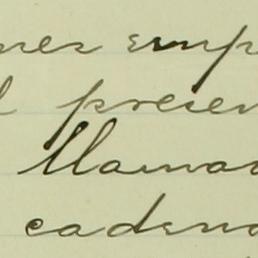 ner emp
l presen
llama
cadena